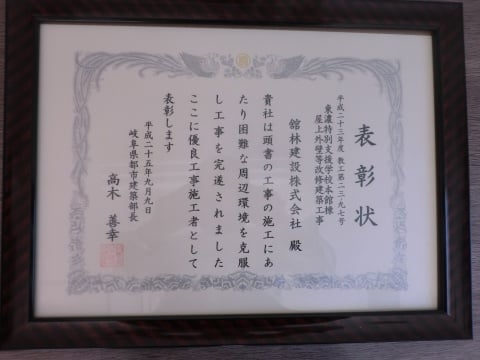 表彰状
平成二十三年度 教工第二三-九七号
東濃特別支援学校本館棟
屋上外壁等改修建築工事
舘林建設株式会社 殿
貴社は頭書の工事の施工にあ
たり困難な周辺環境を克服
し工事を完遂されました
ここに優良工事施工者として
表彰します
平成二十五年九月九日
岐阜県都市建築部長
高木 善幸